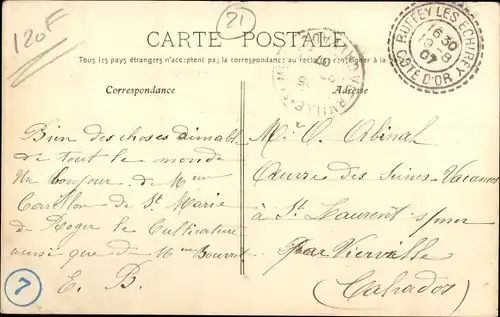 120F
21
CARTE POSTALE
Tous les pays étrangers n'acceptent pas la correspondance au recto
Correspondance
Adresse
RUFFEY LES ECHIREY
6 30
19 - 8
07
COTE D'OR
Bien des choses aimables
de tout le monde
Un bonjour de Mme
Carillon de St Marie
de Roger le Cultivateur
ainsi que de Mme Bourret
E. B.
7
M. O. Abinal
Oeuvre des Seines-Vacances
à St Laurent s/mer
par Vierville
(Calvados)